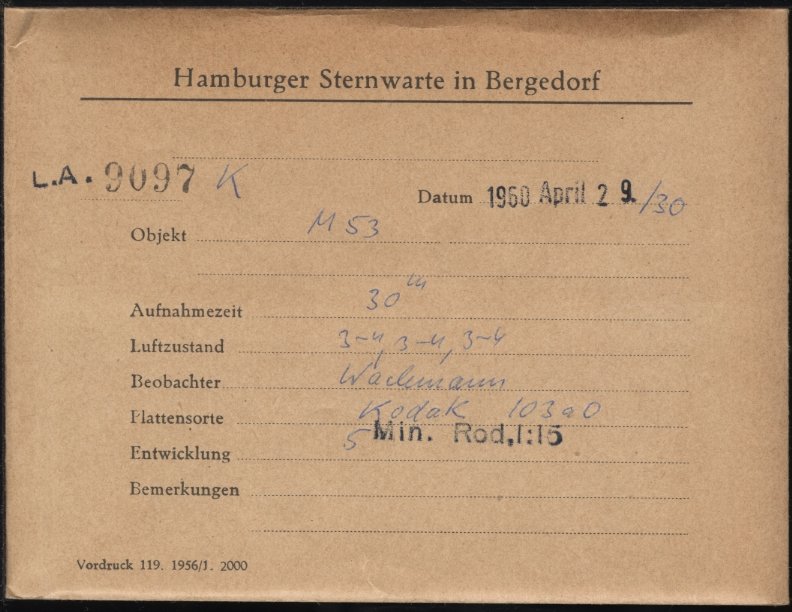 Hamburger Sternwarte in Bergedorf
L.A. 9097 K
Datum 1960 April 29./30
Objekt M 53
Aufnahmezeit 30ᵐ
Luftzustand 3-4, 3-4, 3-4
Beobachter Wachmann
Plattensorte Kodak 103aO
Entwicklung 5 Min. Rod,1:15
Bemerkungen
Vordruck 119. 1956/1. 2000